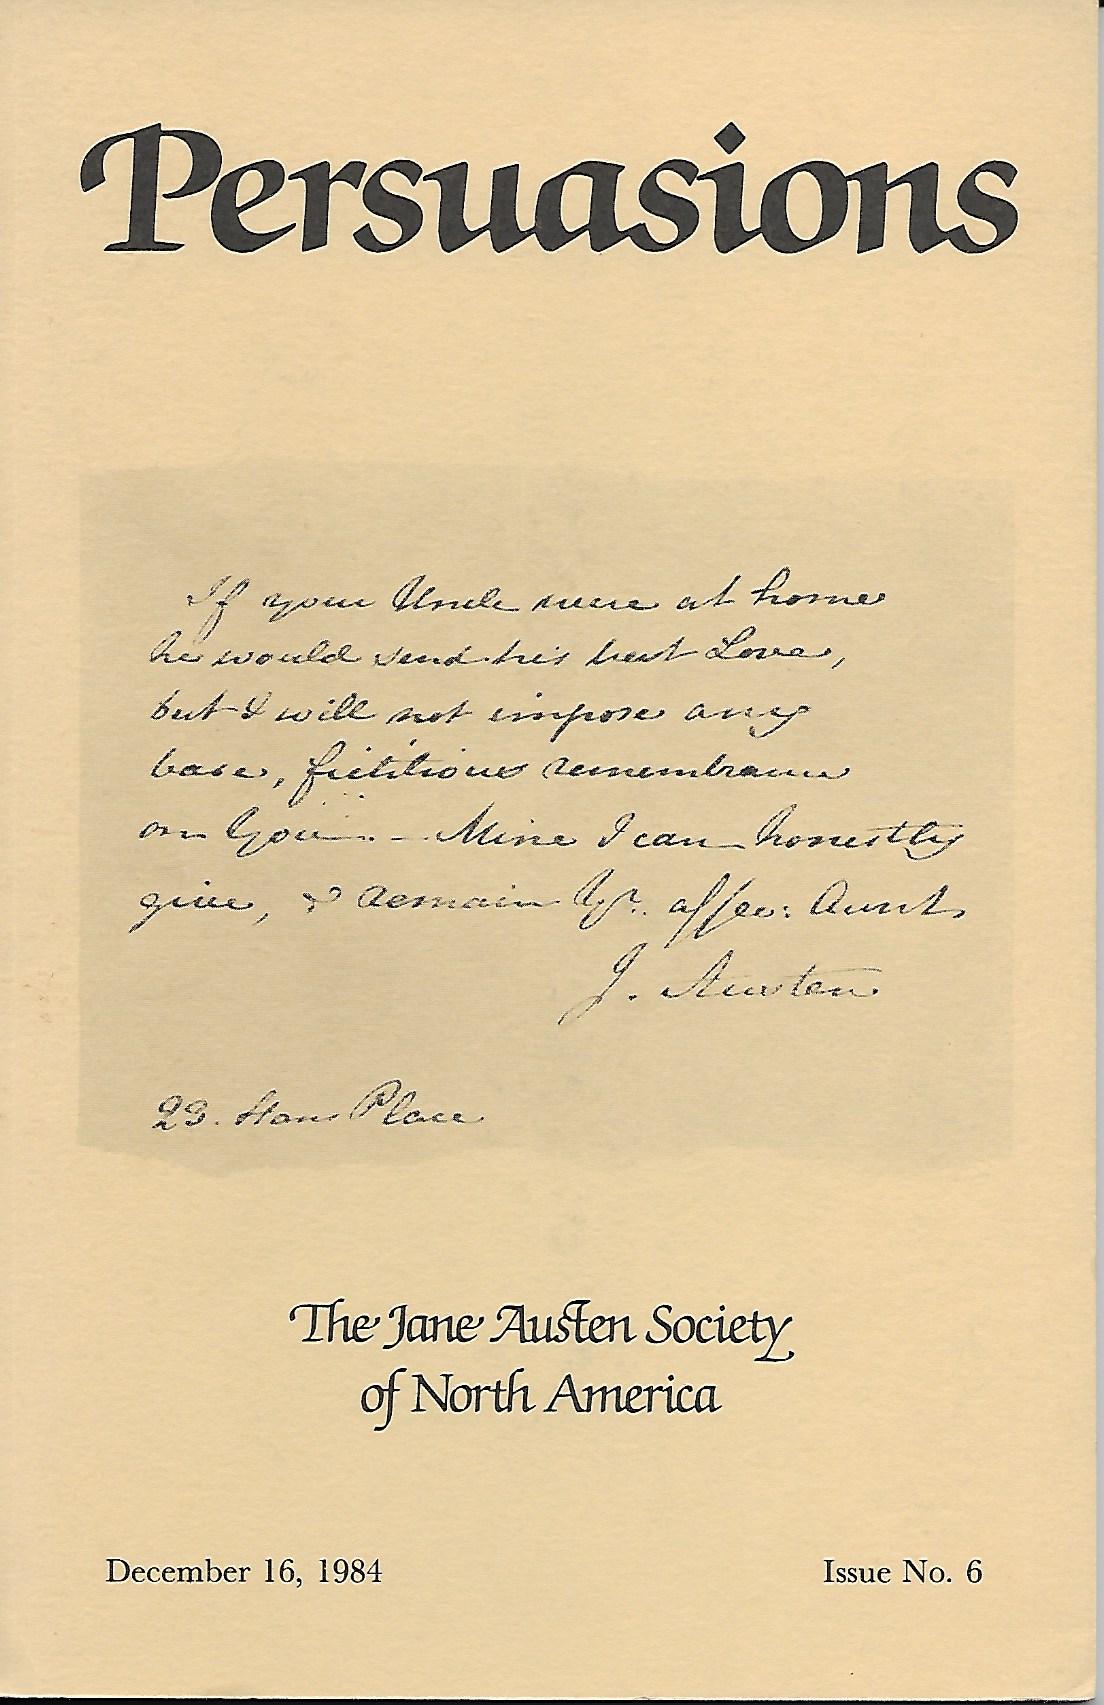 Persuasions
If your Uncle were at home
he would send his best Love,
but I will not impose any
base, fictitious remembrance
on You. — Mine I can honestly
give, & remain Yr. affec: Aunt
J. Austen
23. Hans Place
The Jane Austen Society
of North America
December 16, 1984
Issue No. 6